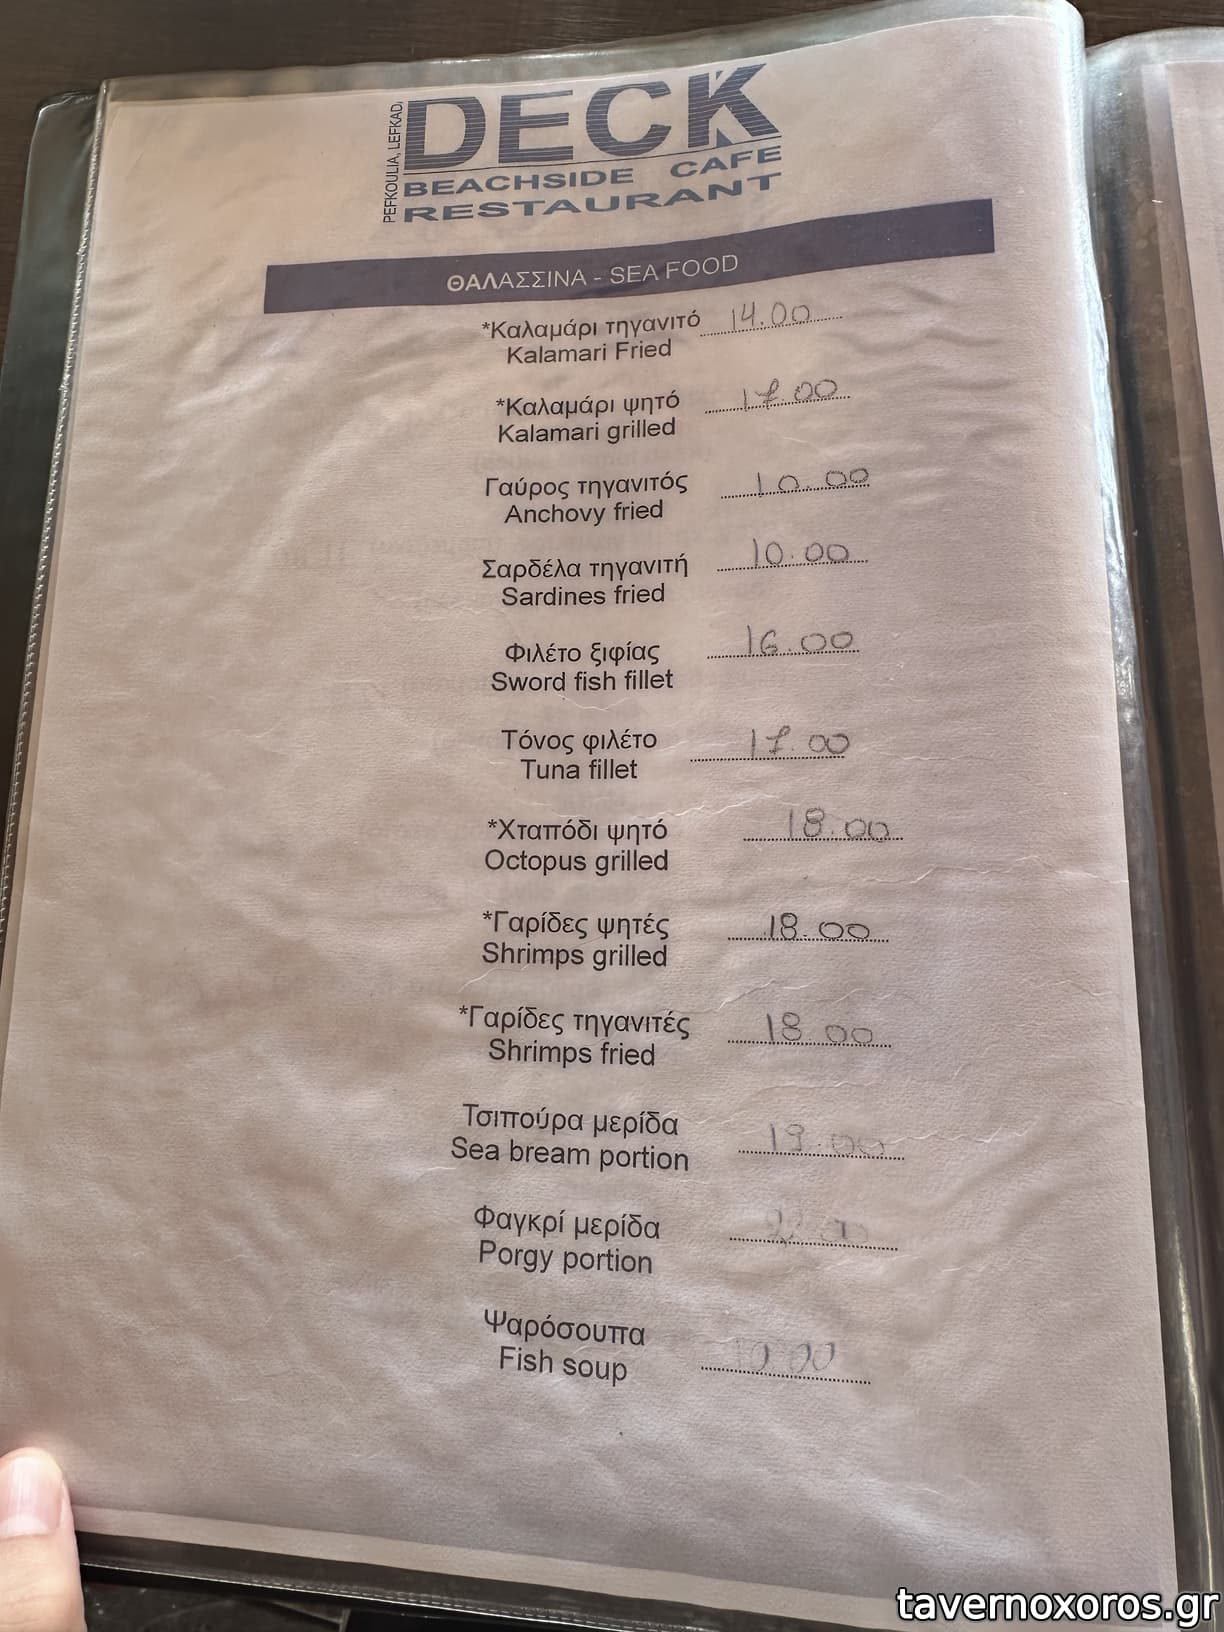 PEFKOULIA, LEFKAD,
DECK
BEACHSIDE CAFE
RESTAURANT
ΘΑΛΑΣΣΙΝΑ - SEA FOOD
*Καλαμάρι τηγανιτό 14.00
Kalamari Fried
*Καλαμάρι ψητό 17.00
Kalamari grilled
Γαύρος τηγανιτός 10.00
Anchovy fried
Σαρδέλα τηγανιτή 10.00
Sardines fried
Φιλέτο ξιφίας 16.00
Sword fish fillet
Τόνος φιλέτο 17.00
Tuna fillet
*Χταπόδι ψητό 18.00
Octopus grilled
*Γαρίδες ψητές 18.00
Shrimps grilled
*Γαρίδες τηγανιτές 18.00
Shrimps fried
Τσιπούρα μερίδα 19.00
Sea bream portion
Φαγκρί μερίδα
Porgy portion
Ψαρόσουπα 10.00
Fish soup
tavernoxoros.gr